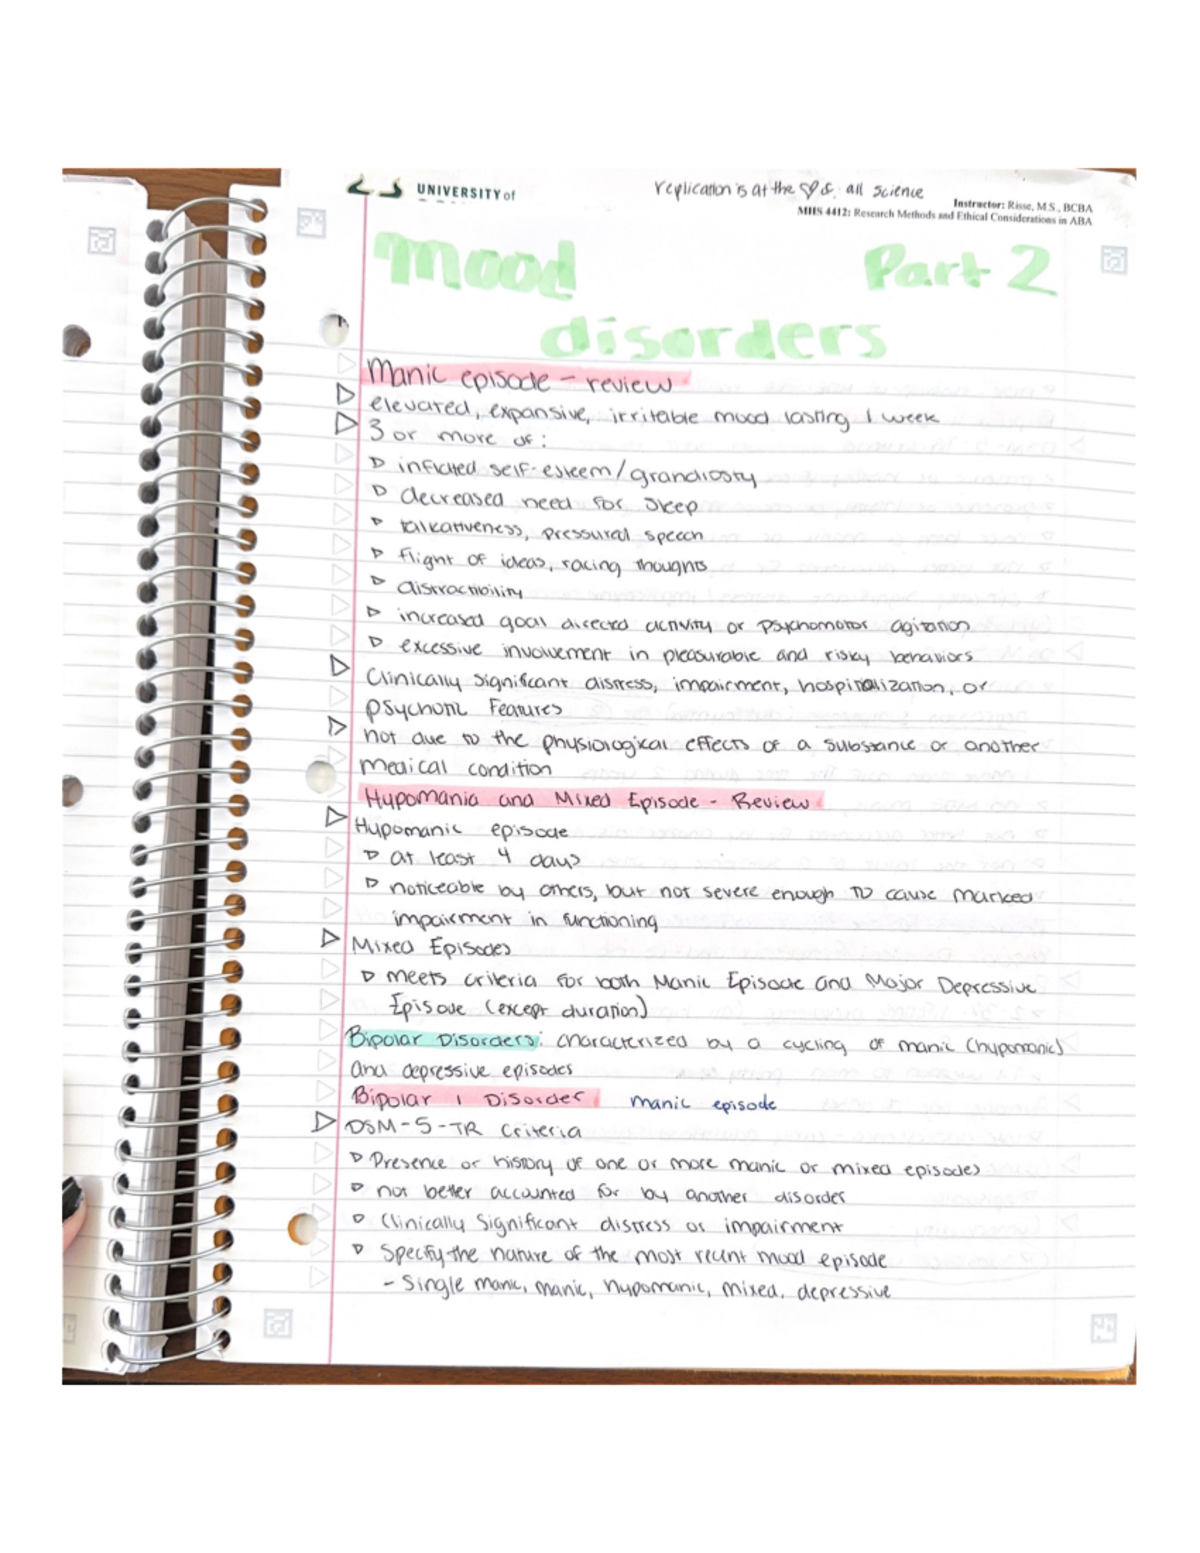 UNIVERSITY of
replication is at the ♡ of all science
Instructor: Risse, M.S., BCBA
MHS 4412: Research Methods and Ethical Considerations in ABA
Mood Part 2
disorders
Manic episode - review
▷ elevated, expansive, irritable mood lasting 1 week
▷ 3 or more of:
▷ inflated self-esteem/grandiosty
▷ decreased need for sleep
▷ talkativeness, pressural speech
▷ flight of ideas, racing thoughts
▷ distractibility
▷ increased goal directed activity or psychomotor agitation
▷ excessive involvement in pleasurable and risky behaviors
▷ Clinically significant distress, impairment, hospitalization, or
psychotic Features
▷ not due to the physiological effects of a substance or another
medical condition
Hypomania and Mixed Episode - Review
▷ Hypomanic episode
▷ at least 4 days
▷ noticeable by others, but not severe enough to cause marked
impairment in functioning
▷ Mixed Episodes
▷ meets criteria for both Manic Episode and Major Depressive
Episode (except duration)
Bipolar Disorders: characterized by a cycling of manic (hypomanic)
and depressive episodes
Bipolar 1 Disorder manic episode
▷ DSM-5-TR Criteria
▷ Presence or history of one or more manic or mixed episodes
▷ not better accounted for by another disorder
▷ Clinically Significant distress or impairment
▷ Specify the nature of the most recent mood episode
- Single manic, manic, hypomanic, mixed, depressive